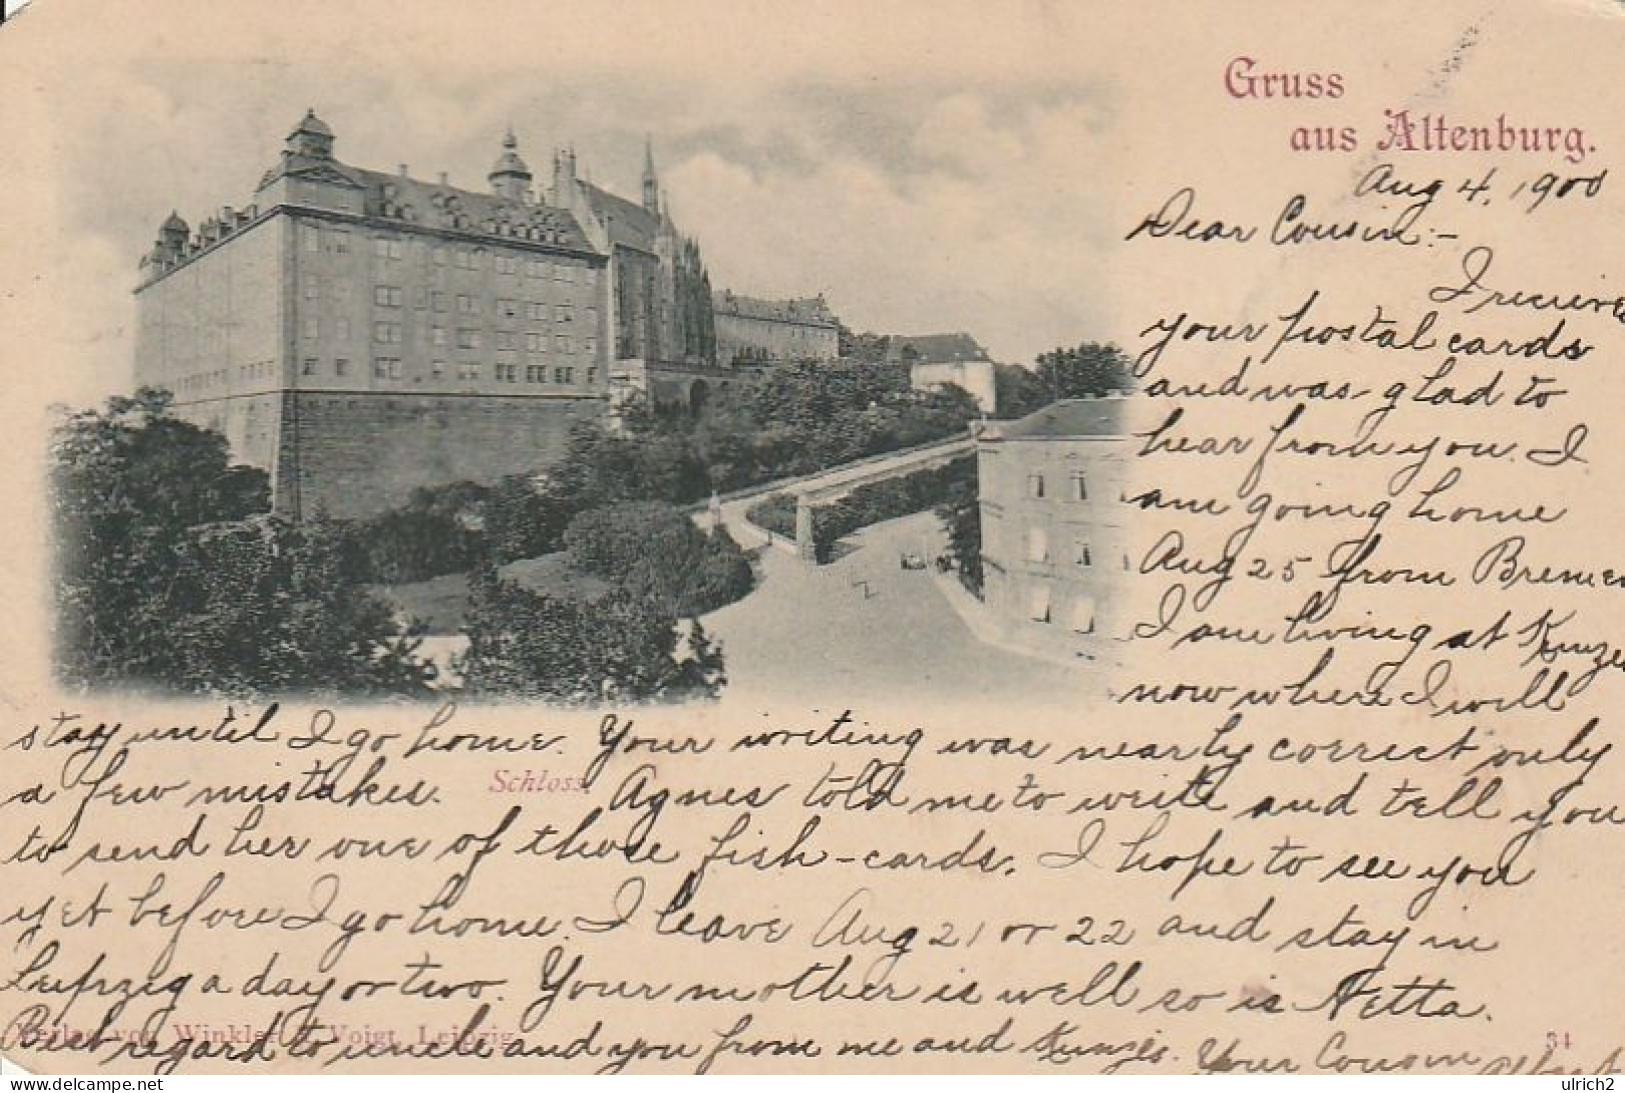 Gruss
aus Altenburg.
Aug 4, 1900
Dear Cousin:-
I recieved
your postal cards
and was glad to
hear from you. I
am going home
Aug 25 from Bremen
I am living at
now where I will
stay until I go home. Your writing was nearly correct only
a few mistakes. Agnes told me to write and tell you
Schloss.
to send her one of those fish-cards. I hope to see you
yet before I go home. I leave Aug 21 or 22 and stay in
Leipzig a day or two. Your mother is well so is Netta.
Best regard to uncle and you from me and Kunzes. Your Cousin Albert
Verlag von Winkler & Voigt, Leipzig.
34
delcampe.net
ulrich2